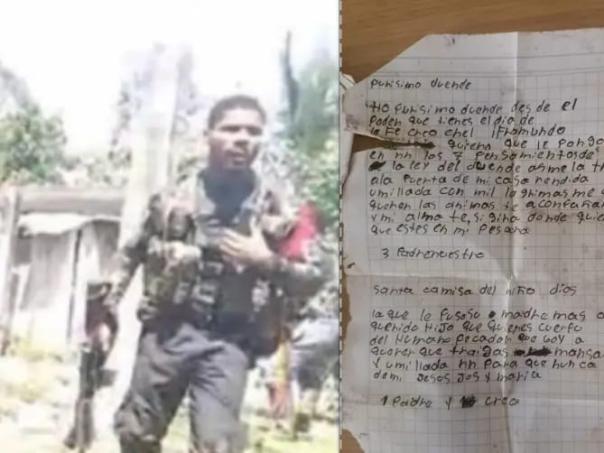 purisimo duende
Ho purisimo duende des de el
Poden que tienes el dia de
la Fe creo en el
quiero que le ponga
en nn los 7 pensamientos de
la ley del duende asme la
ala puerta de mi casa rendida
umillada con mil lagrimas me
queren las animas te aconfañan
y mi alma te sigiha donde quie
que estes en mi
3 Padrenuestro
santa camisa del niño dios
la que le puso madre mas
querido Hijo que quienes cuerpo
del Humano pecador que voy a
querer que traigas mansa
y umillada nn para que nunca
de mi Jesos Jos y maria
1 Padre y creo